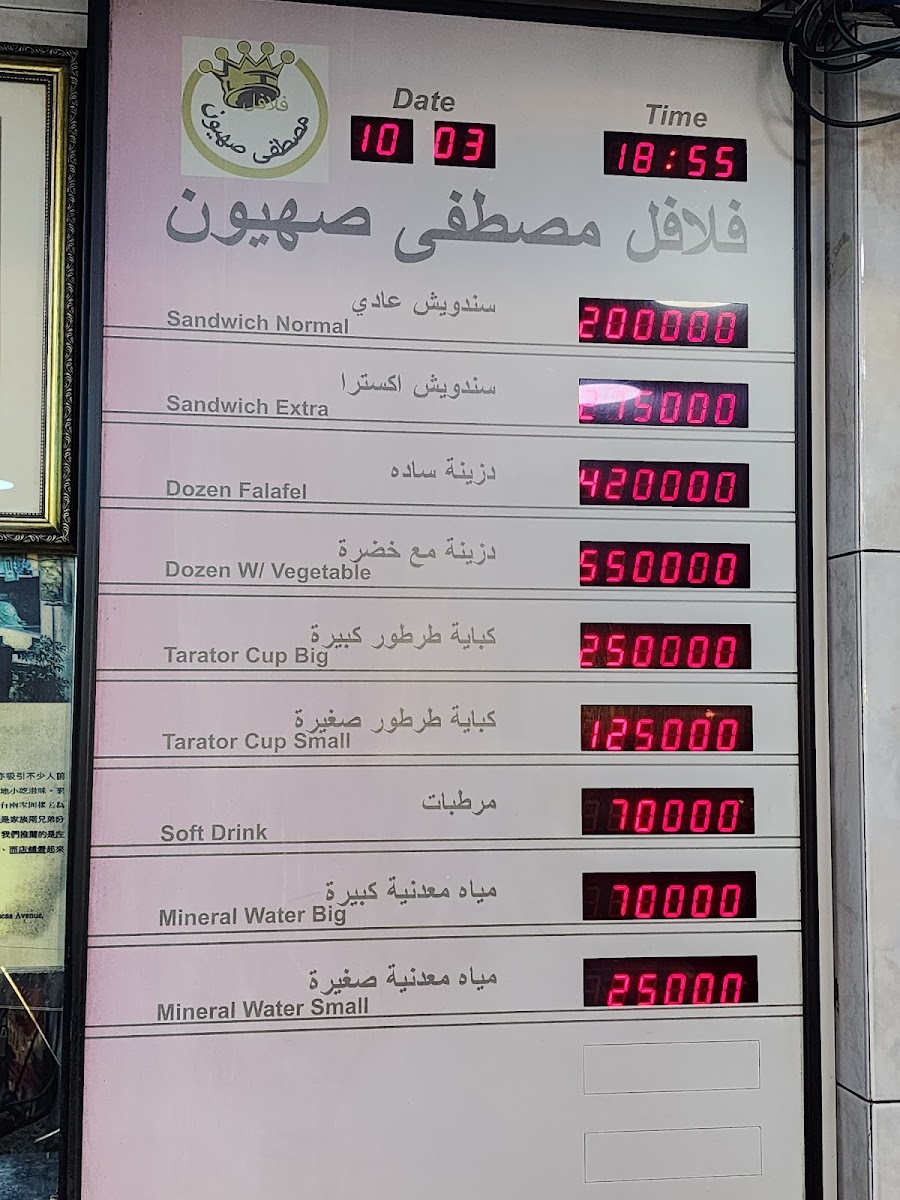 فلافل
مصطفى صهيون
Date
Time
10 03
18:55
فلافل مصطفى صهيون
سندويش عادي
Sandwich Normal
200000
سندويش اكسترا
Sandwich Extra
275000
دزينة ساده
Dozen Falafel
420000
دزينة مع خضرة
Dozen W/ Vegetable
550000
كباية طرطور كبيرة
Tarator Cup Big
250000
كباية طرطور صغيرة
Tarator Cup Small
125000
مرطبات
Soft Drink
70000
مياه معدنية كبيرة
Mineral Water Big
70000
مياه معدنية صغيرة
Mineral Water Small
25000
吸引不少人前
地小吃滋味。
是家族兩兄弟份
我們推薦的是左
、而店舖看起來
Avenue,